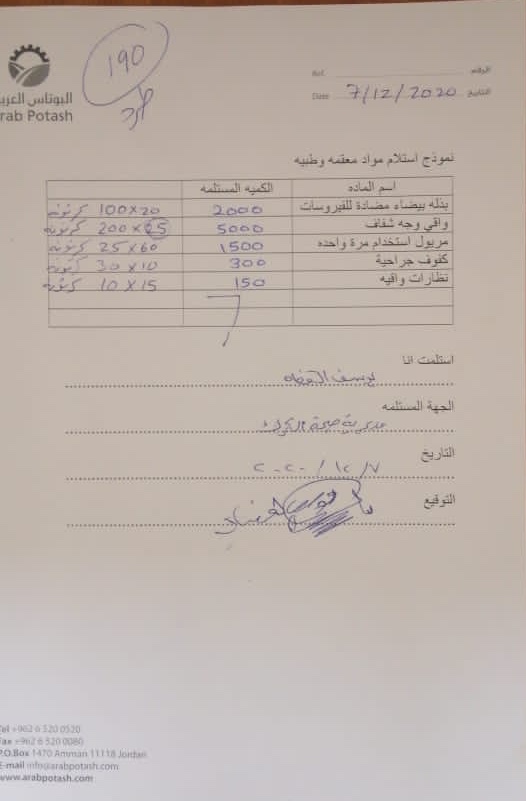 190
البوتاس العربية
Arab Potash
Ref. الرقم
Date 7/12/2020 التاريخ
نموذج استلام مواد معقمه وطبيه
اسم الماده الكميه المستلمه
بدله بيضاء مضادة للفيروسات 2000 100x20 كرتونه
واقي وجه شفاف 5000 200x25 كرتونه
مريول استخدام مرة واحده 1500 25x60 كرتونه
كفوف جراحية 300 30x10 كرتونه
نظارات واقيه 150 10x15 كرتونه
استلمت انا
يوسف
الجهة المستلمه
مديرية صحة الكرك
التاريخ
٢٠٢٠/١٢/٧
التوقيع
Tel +962 6 520 0520
Fax +962 6 520 0080
P.O.Box 1470 Amman 11118 Jordan
E-mail info@arabpotash.com
www.arabpotash.com